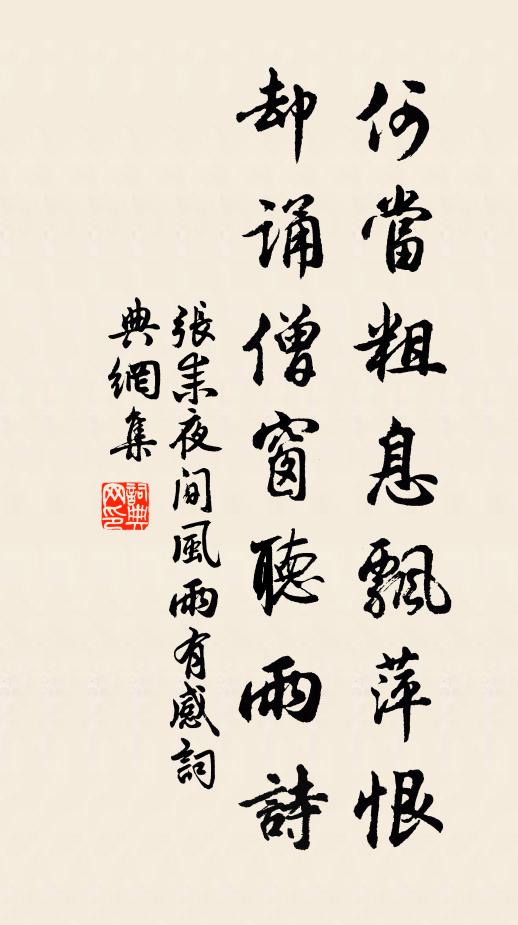 何當粗息飄萍恨
却誦僧窗聽雨詩
張耒夜聞風雨有感詞
典網集
詞典網印